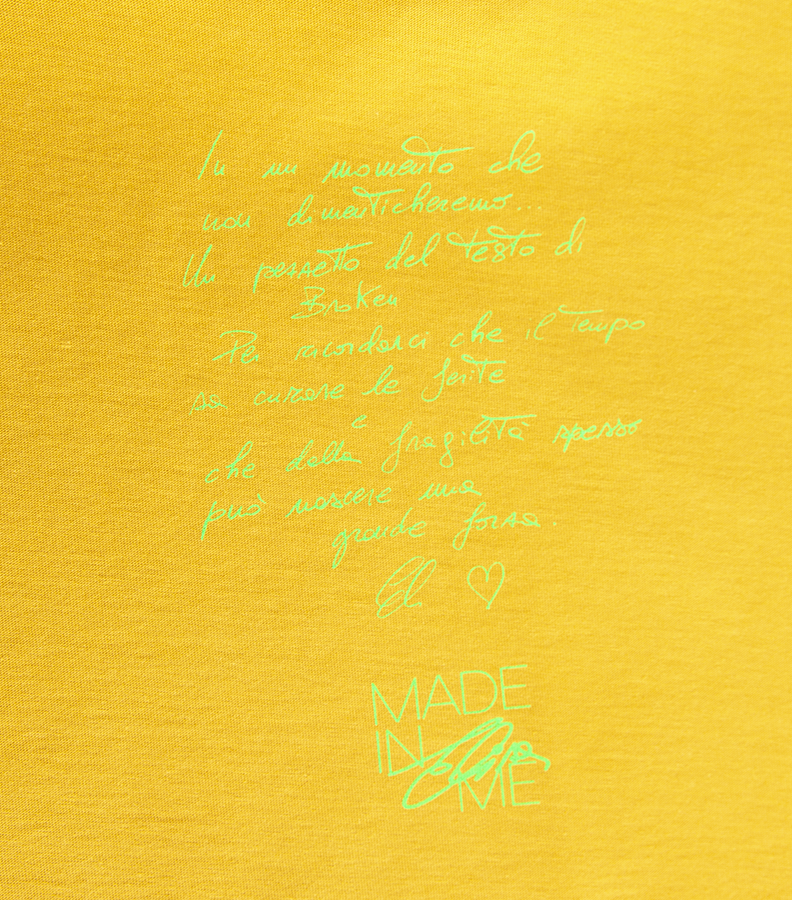 In un momento che
non dimenticheremo...
Un pezzetto del testo di
Broken
Per ricordarci che il tempo
sa curare le ferite
e
che dalla fragilità spesso
può nascere una
grande forza.
Eli ♡
MADE
IN
ME